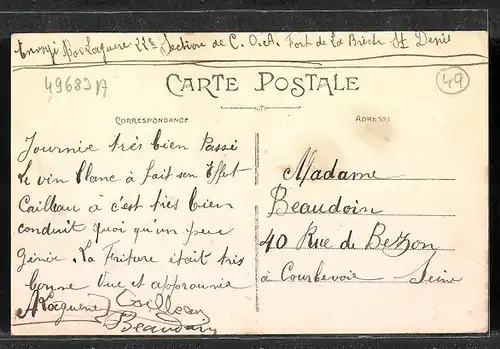 Envoyé par Laguerre 22e Section de C.O.A. Fort de la Brich St Denis
49683A
CARTE POSTALE
49
CORRESPONDANCE
ADRESSE
Journie très bien Passé
le vin blanc à fait son Effet
Cailleau à c'est très bien
conduit quoi qu'un peu
génie. La Friture était très
bonne Vue et approuvée
ALaguerre
Cailleau
Beaudoin
Madame
Beaudoin
40 Rue de Bezon
à Courbevoie Seine